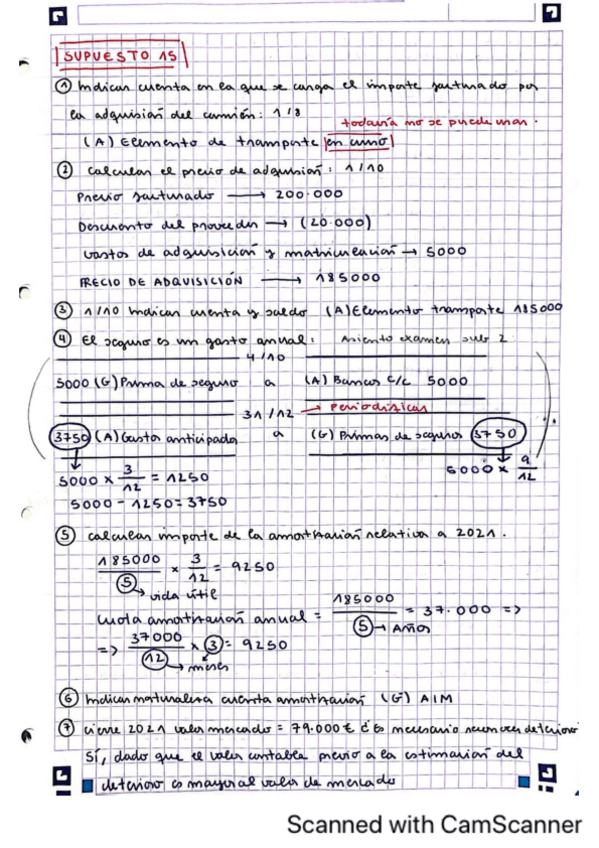 SUPUESTO 15
① Indicar cuenta en la que se carga el importe facturado por
la adquisición del camión: 1/8
todavía no se puede usar.
(A) Elemento de transporte en curso
② Calcular el precio de adquisión: 1/10
Precio facturado → 200.000
Descuento del proveedor → (20.000)
Gastos de adquisición y matriculación → 5000
PRECIO DE ADQUISICIÓN → 185000
③ 1/10 Indicar cuenta y saldo (A) Elemento transporte 185000
④ El seguro es un gasto anual: Asiento examen sub 2
4/10
5000 (G) Prima de seguro a (A) Bancos c/c 5000
31/12 → Periodificar
3750 (A) Gasto anticipado a (G) Primas de seguros 3750
5000 × 3/12 = 1250
5000 × 9/12
5000 - 1250 = 3750
⑤ Calcular importe de la amortización relativa a 2021.
185000/5 × 3/12 = 9250
vida útil
Cuota amortización anual = 185000/5 = 37.000 =>
Años
=> 37000/12 × 3 = 9250
meses
⑥ Indicar naturaleza cuenta amortización (G) AIM
⑦ Cierre 2021 valor mercado = 79.000€ ¿Es necesario reconocer deterioro
Sí, dado que el valor contable previo a la estimación del
deterioro es mayor al valor de mercado
Scanned with CamScanner